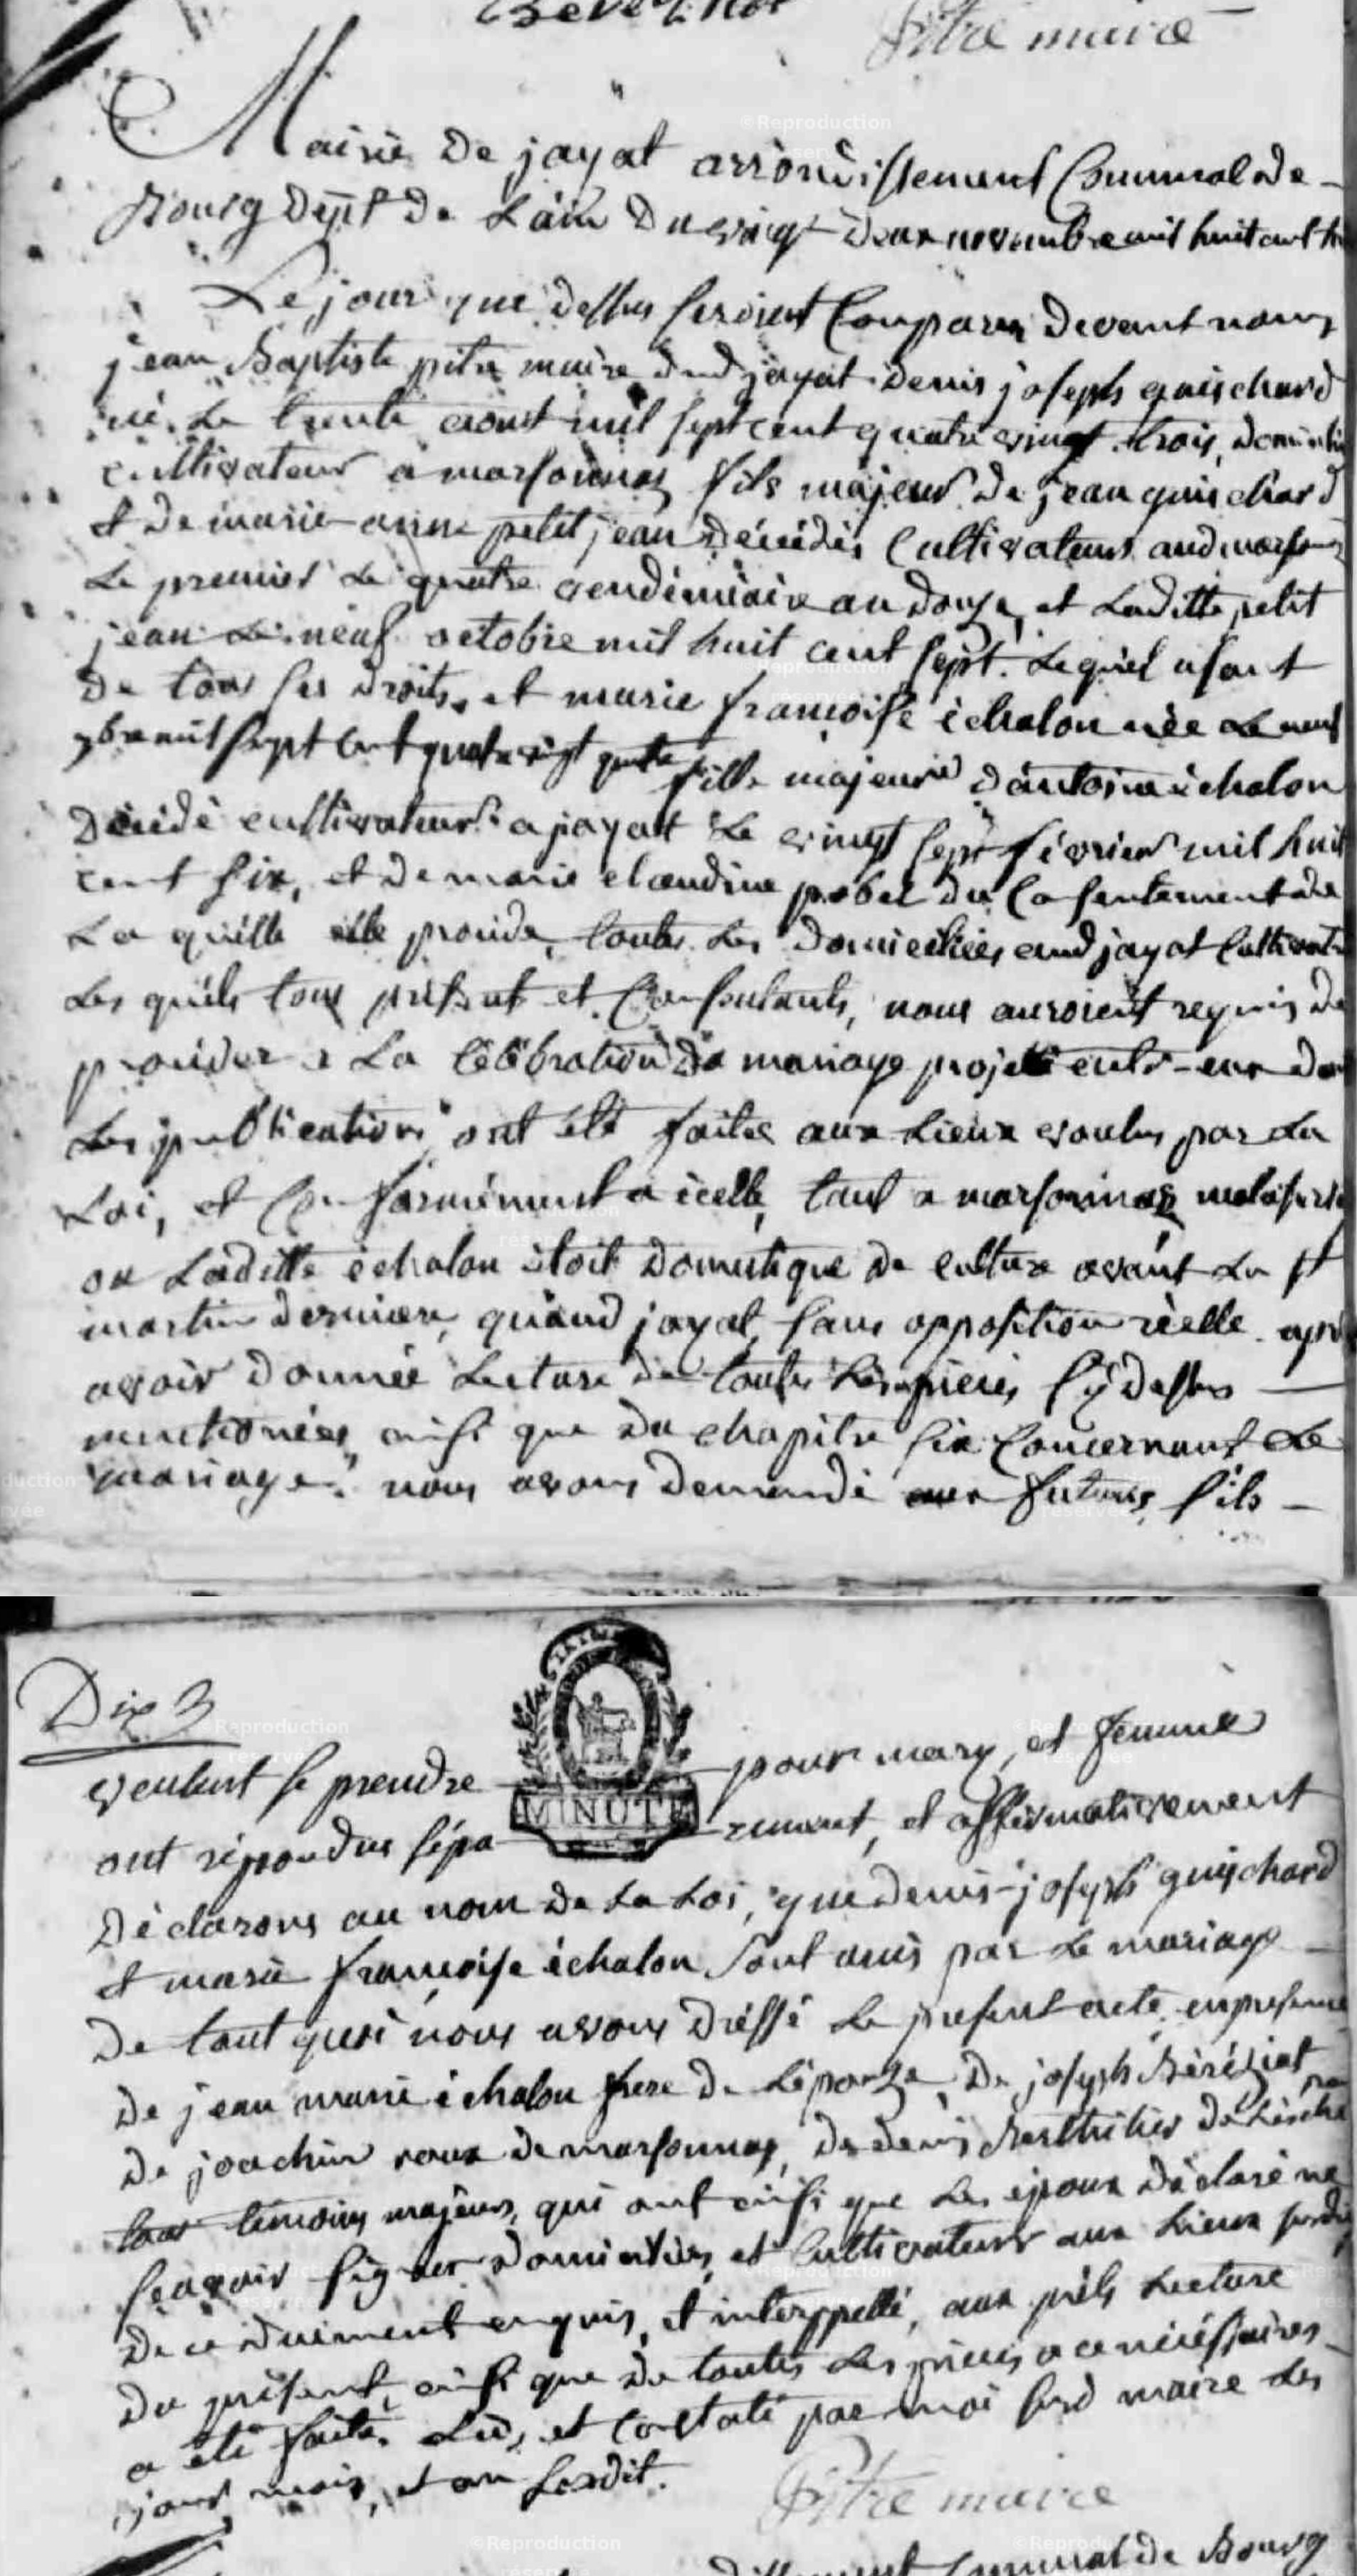 Pitre maire
Mairie De jayat arrondissement Communal de
Bourg Dept De L'ain Du vingt Deux novembre mil huit cent
Le jour que dessus seroient Comparu Devant nous
jean Baptiste pitre maire dud jayat Denis joseph guichard
né Le trente aoust mil sept cent quatre vingt trois,
cultivateur a marsonnas fils majeur De jean guichard
et De marie anne petit jean Décédés Cultivateurs aud
Le premier Le quatre vendémiaire an Douze, et Laditte petit
jean Le neuf octobre mil huit cent sept. Lequel usant
De tous ses Droits, et marie françoise échalon née Le neuf
mil sept cent quatre vingt fille majeure D'antoine échalon
Décédé cultivateur a jayat Le vingt sept février mil huit
cent six, et De marie claudine probel du Consentement de
La quelle elle procède, toutes Les Domiciliées aud jayat
Les quels tous présent et Consentants, nous auroient requis De
procéder a La Célébration Du mariage projetté entr-eux
Les publications ont été faites aux Lieux voulus par La
Loi, et Conformément a icelle, tant a marsonnas
ou Laditte échalon étoit Domestique De culture avant La st
martin Derniere, quaud jayat, sans opposition réelle. après
avoir Donnée Lecture De toutes Les pieces Cy Dessus
mentionées ainsi que Du chapitre six Concernant Le
mariage. nous avons Demandé aux futures s'ils
Dix 3
veulent se prendre pour mary, et femme
MINUTE
ont répondus sépa rement, et affirmativement
Déclarons au nom De La Loi, que Denis-joseph guichard
et marie françoise échalon sont unis par Le mariage
De tout quoi nous avons Dréssé Le present acte en presence
De jean marie échalon frere De L'épouze, De joseph Béréziat
De joachim roux De marsonnas, De Denis
tous témoins majeurs, qui ont ainsi que Les époux Déclaré ne
sçavoir signer Domiciliés, et Cultivateurs aux Lieux
De ce Duement enquis, et interppellé, aux quels Lecture
Du présent, ainsi que De toutes Les pieces a ce nécéssaires
a été faite. Lu, et Constaté par moi susd maire Les
jour, mois, et an susdit.
Pitre maire
Communal de Bourg